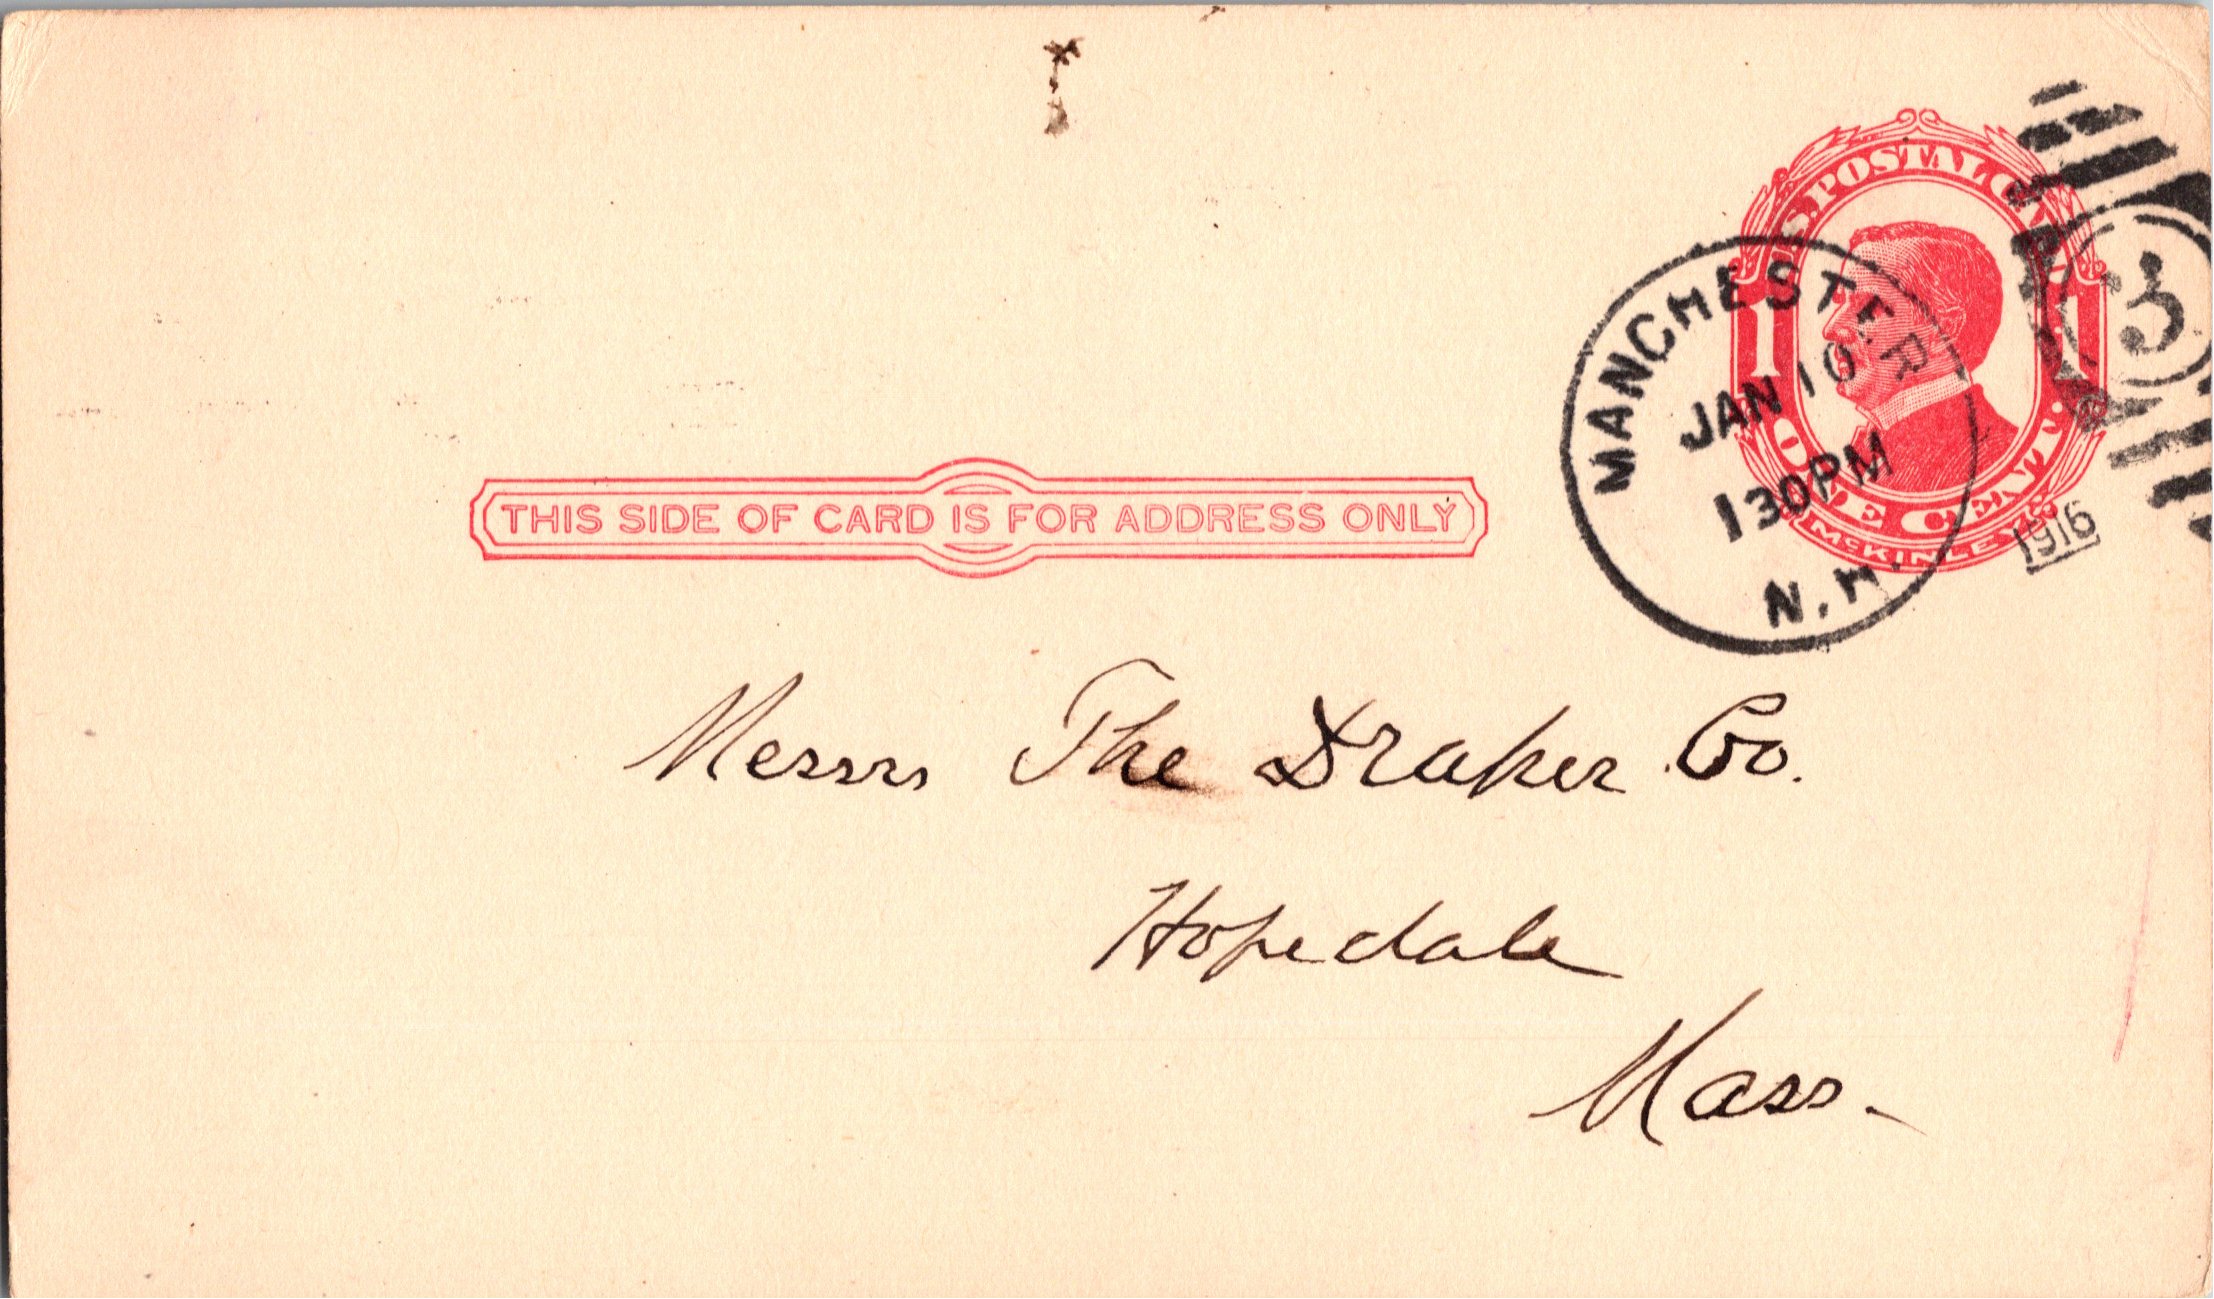 U.S. POSTAL CARD
1 1
ONE CENT
McKINLEY
MANCHESTER
JAN 10
130PM
N.H.
1916
3
THIS SIDE OF CARD IS FOR ADDRESS ONLY
Messrs The Draper Co.
Hopedale
Mass.